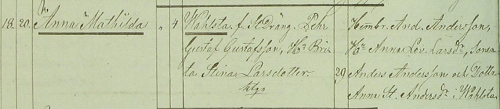 18. 20. Anna Mathilda " 4. Wahlsta, f. St.dräng. Pehr
Gustaf Gustafsson, Ho Bri-
ta Stina Larsdotter.
Hembr. And. Andersson,
Ho Anna Lov. Larsdr,
29 Anders Andersson och Dottr
Anna St. Andersdr i Wahlsta